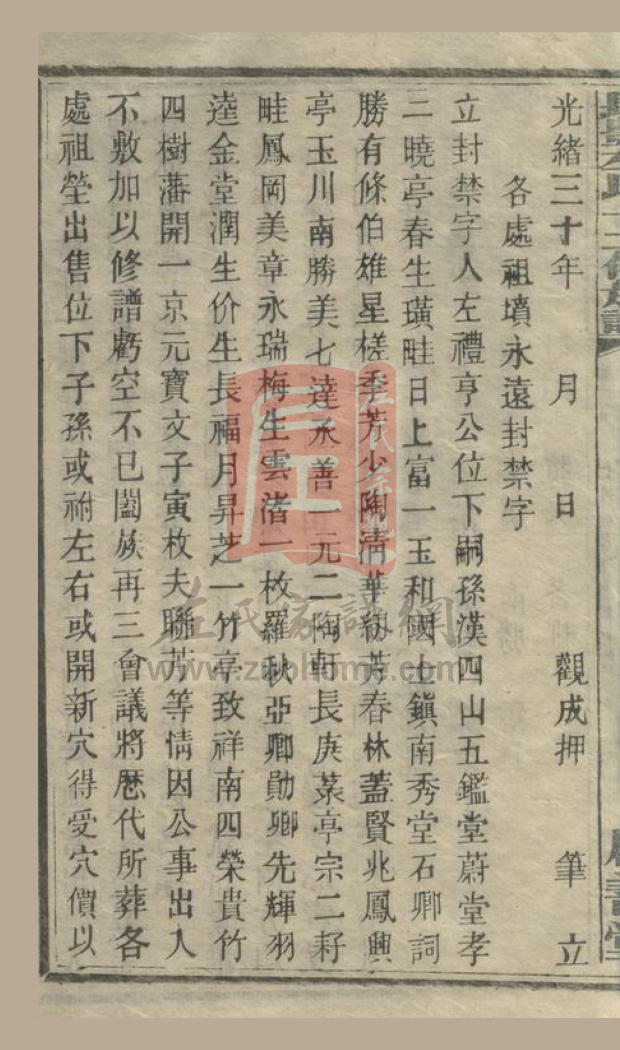 光緒三十年　月　日　觀成押　筆　立
各處祖墳永遠封禁字
立封禁字人左禮亨公位下嗣孫漢四山五鑑堂蔚堂孝
三曉亭春生璜畦日上富一玉和國士鎮南秀堂石卿詞
勝有條伯雄星槎季芳少陶清華紉芳春林蓋賢兆鳳興
亭玉川南勝美七達丞善一元二陶軒長庚菉亭宗二耔
畦鳳岡美章永瑞梅生雲渚一枚羅秋亞卿勛卿先輝羽
逵金堂潤生价生長福月昇芝一竹亭致祥南四榮貴竹
四樹藩開一京元寶文子寅枚夫聯芳等情因公事出入
不敷加以修譜虧空不已闔族再三會議將歷代所葬各
處祖塋出售位下子孫或祔左右或開新穴得受穴價以
左氏家譜網
www.zuohome.com